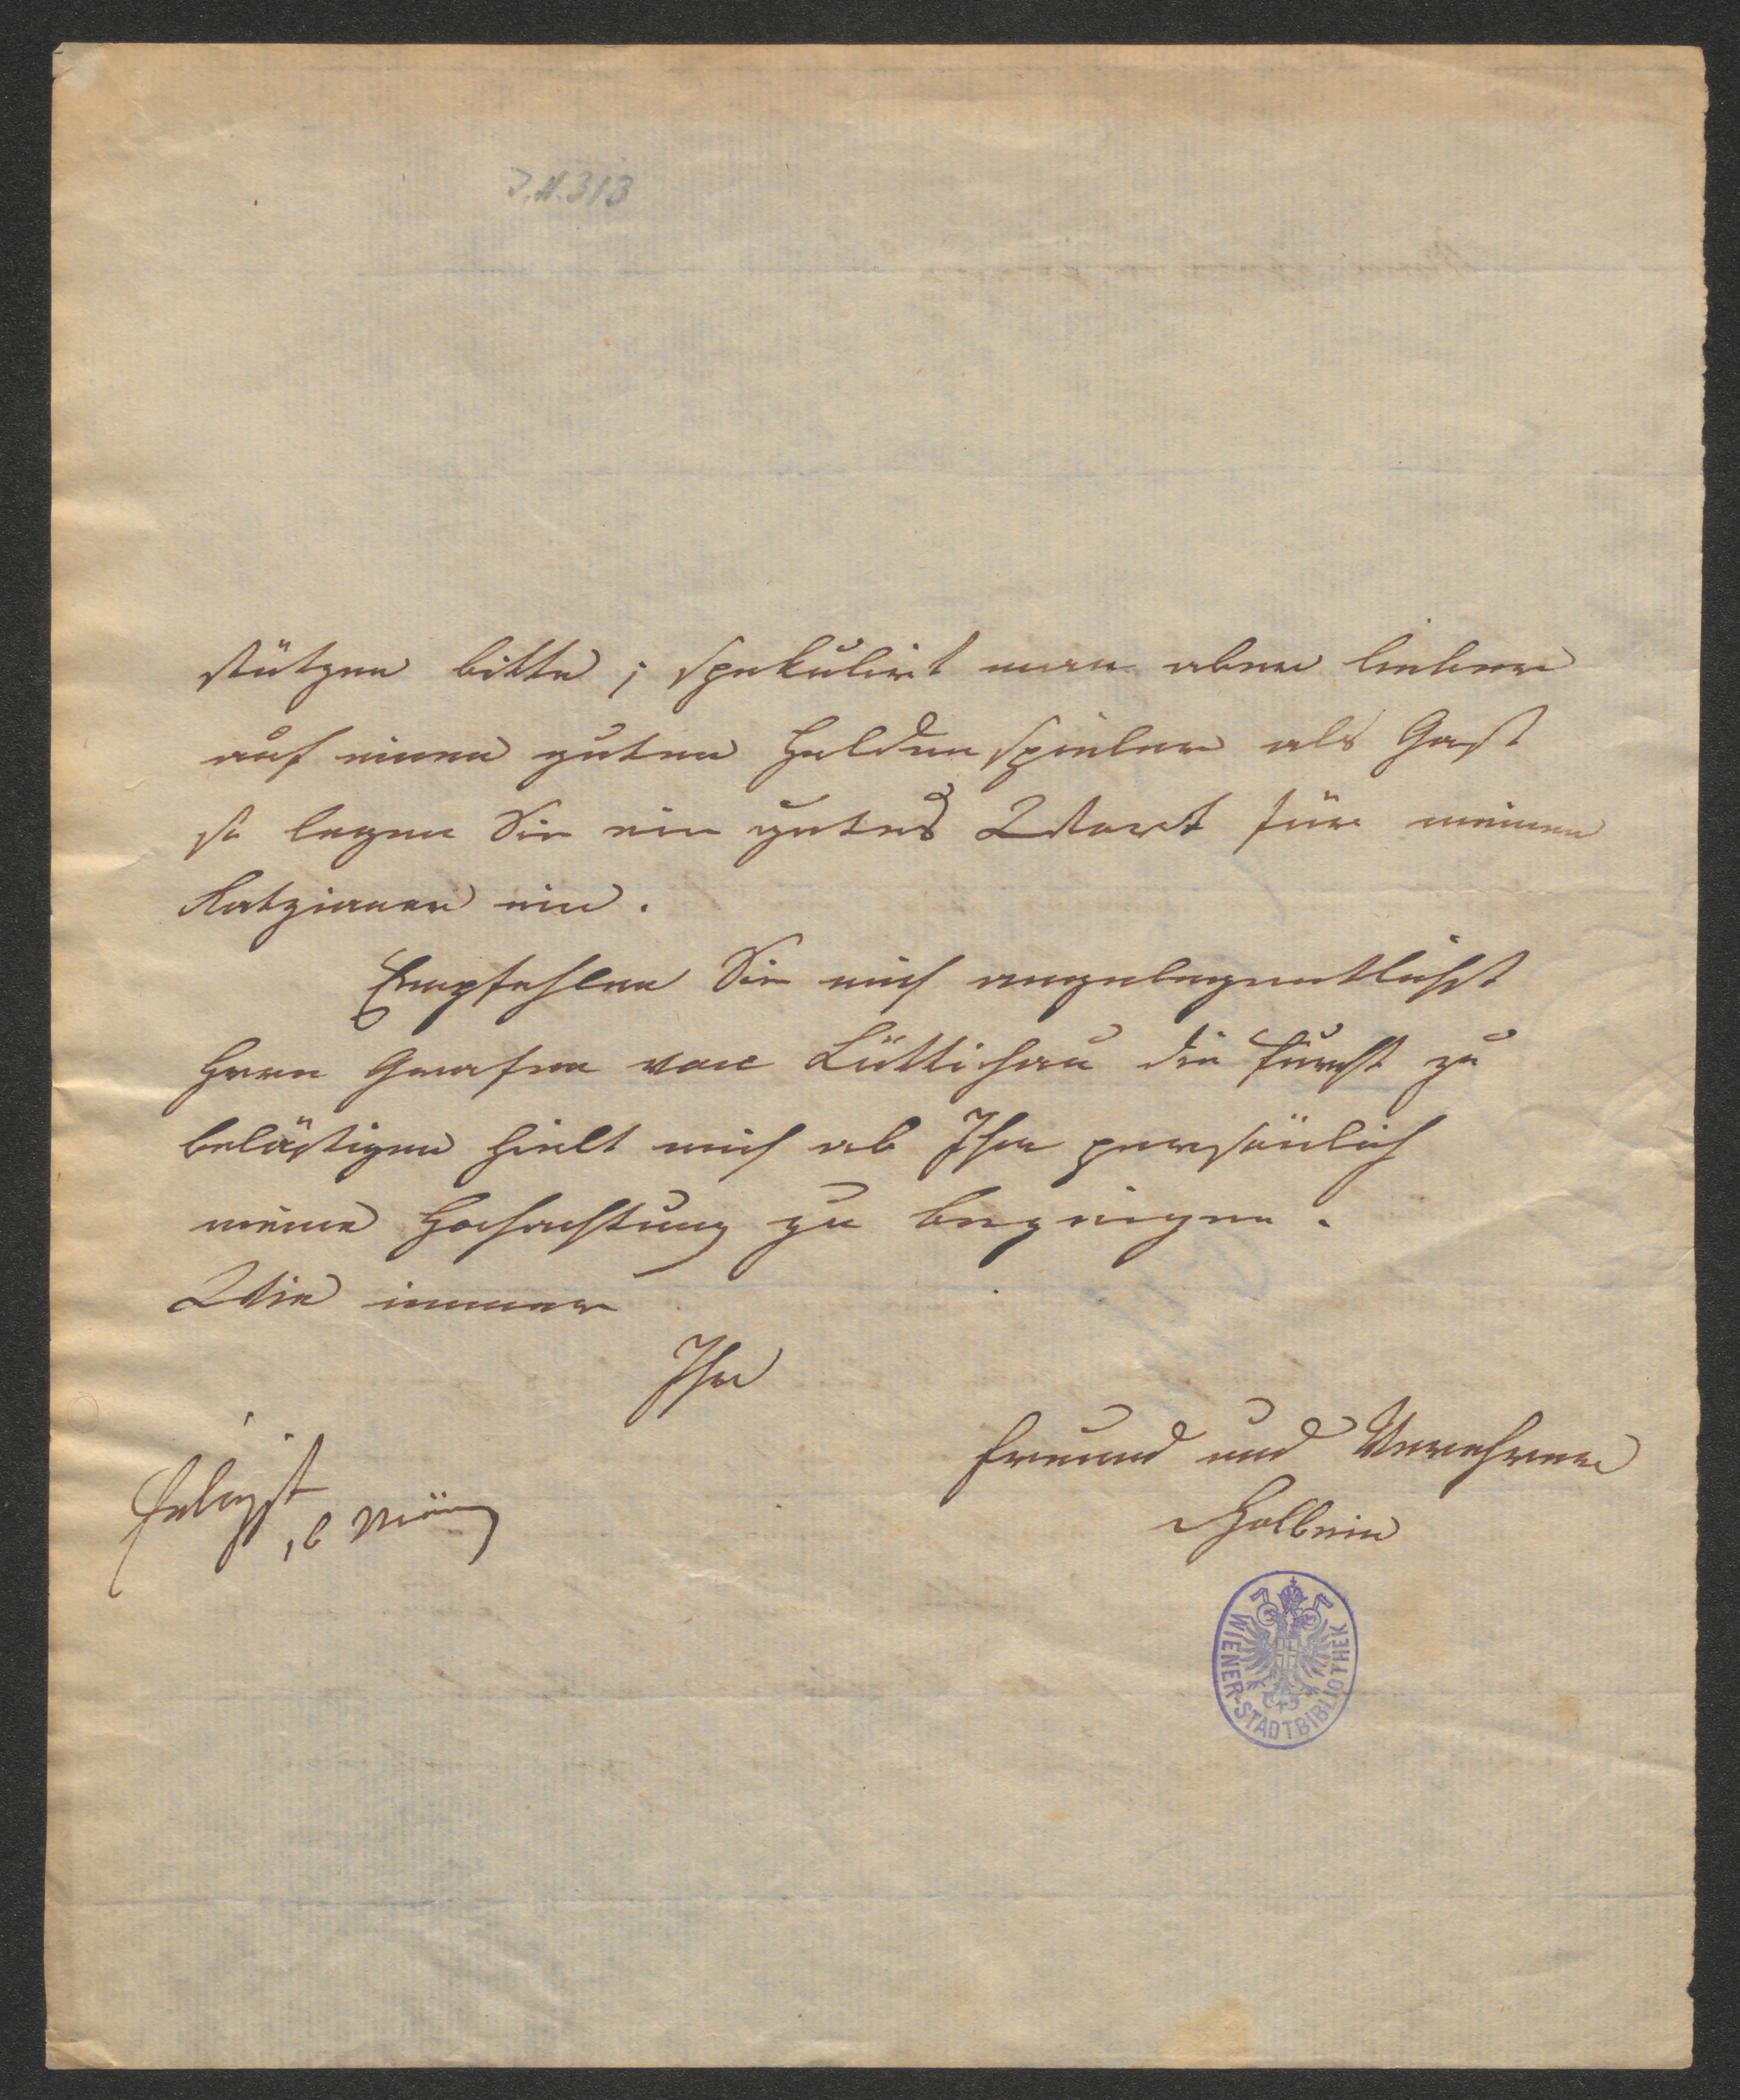 J.N. 313
stützen bitte; spekulirt man aber lieber
auf einen guten Heldenspieler als Gast
so legen Sie ein gutes Wort für meinen
Katzianer ein.
Empfehlen Sie mich angelegentlichst
Herrn Grafen von Lüttichau die Furcht zu
belästigen hielt mich ab Ihm persönlich
meine Hochachtung zu bezeigen.
Wie immer
Ihr
Freund und Verehrer
Holbein
eiligst
16 März
WIENER-STADTBIBLIOTHEK